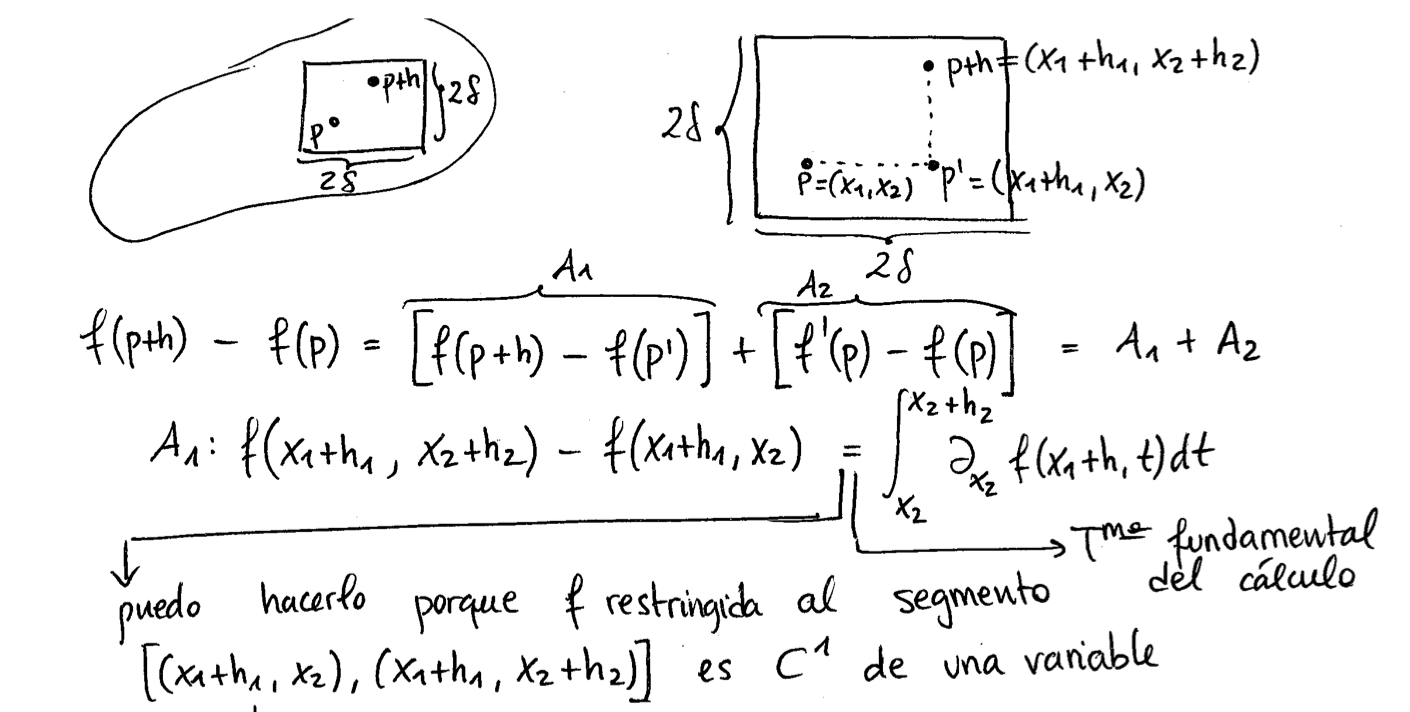 p+h
2δ
p
2δ
2δ
p+h=(x₁+h₁, x₂+h₂)
p=(x₁,x₂)
p'=(x₁+h₁,x₂)
2δ
A₁
A₂
f(p+h) - f(p) = [f(p+h) - f(p')] + [f'(p) - f(p)] = A₁ + A₂
A₁: f(x₁+h₁, x₂+h₂) - f(x₁+h₁,x₂) = ∫_{x₂}^{x₂+h₂} ∂_{x₂} f(x₁+h,t)dt
Tᵐᵃ fundamental
del cálculo
puedo hacerlo porque f restringida al segmento
[(x₁+h₁, x₂), (x₁+h₁, x₂+h₂)] es C¹ de una variable